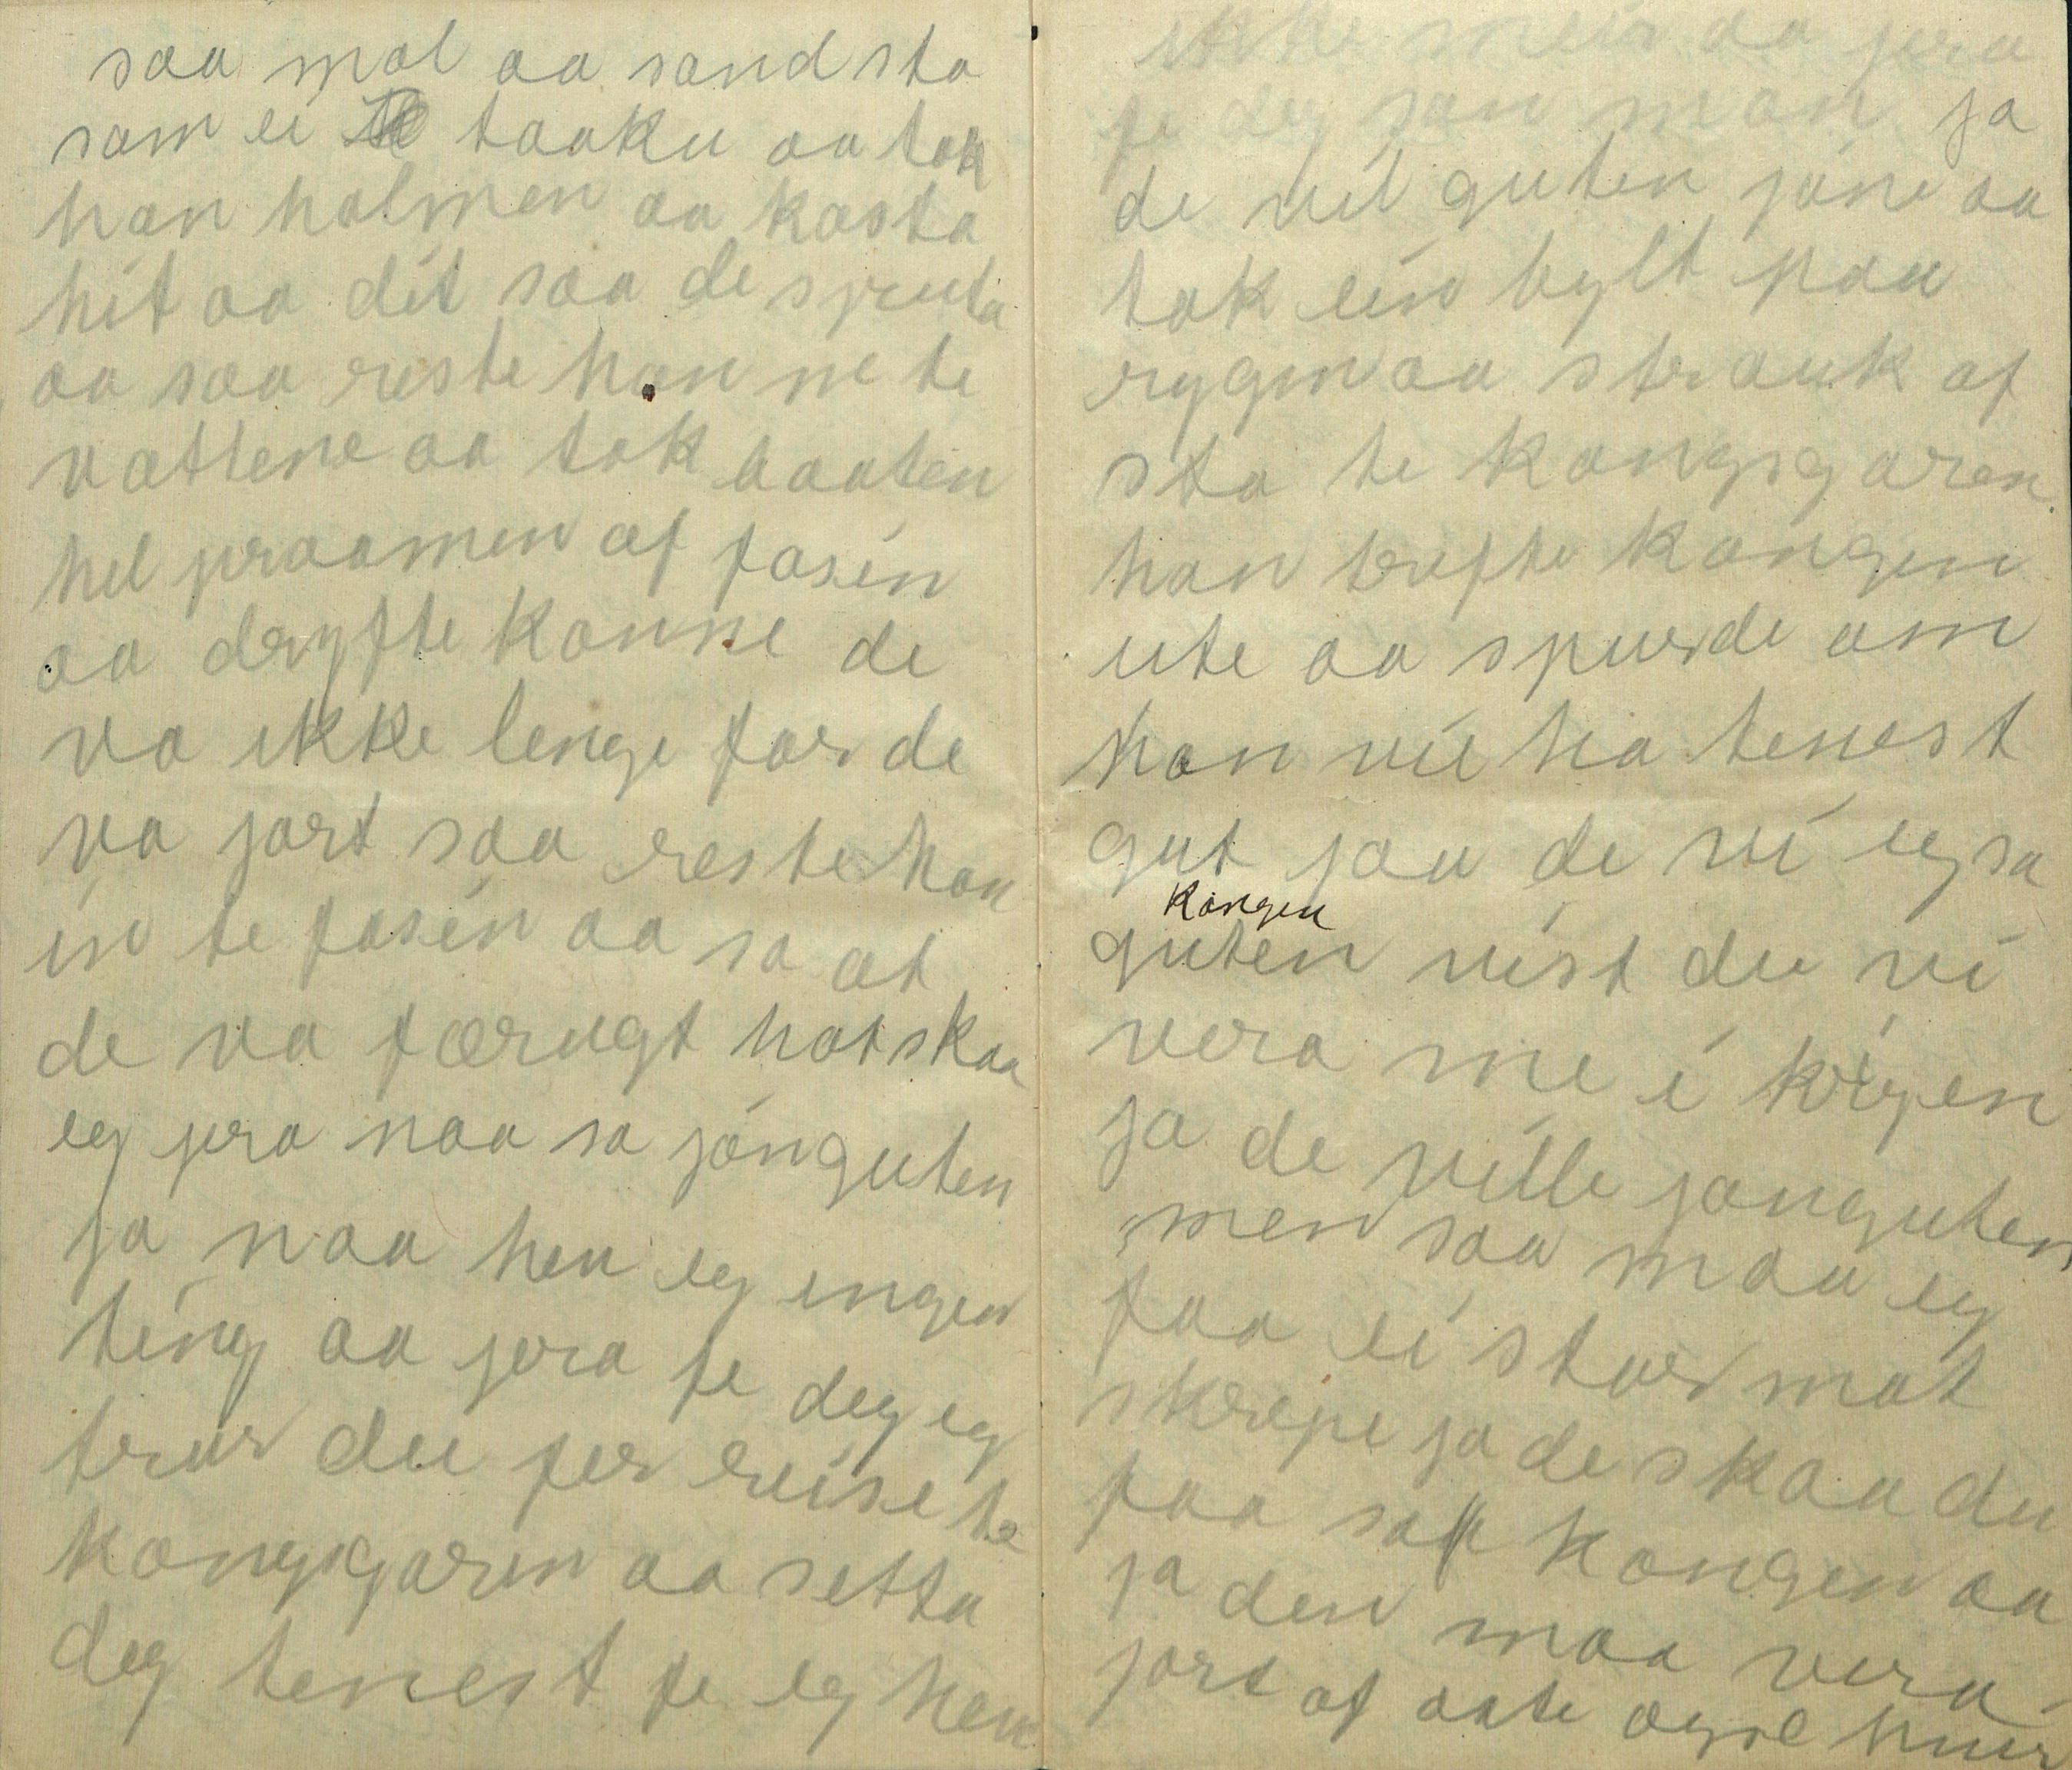 saa mol aa sand sto
som ei taaku aa tok
han halmen aa kasta
hit aa dit saa de spruta
aa saa reiste han ne te
vattene aa tok baaten
hel praamen af fosin
aa dryfte konne de
va ikke lenge for de
va jort saa reiste han
in te fosin aa sa at
de va færugt hot skaa
eg jera naa sa jonguten
ja naa heu eg ingen
ting aa jera fe deg eg
trur du fer reise te
kongsgaren aa setta
deg tenest fe eg heu
ikke meir aa jera
fe deg jon mon ja
de vil guten jóne aa
tok ein bylt paa
rygin aa strauk af
sta te kongsgaren
han trefte kongen
ute aa spurde om
han vil ha tenest
gut jaa de vi eg sa
kongen
guten vist du vi
vera me i krigen
ja de ville jonguten
men saa maa eg
faa ei stor mat
skrepe ja de skaa du
faa sa kongen aa
ja den maa vera
jort af aate øgsl huer